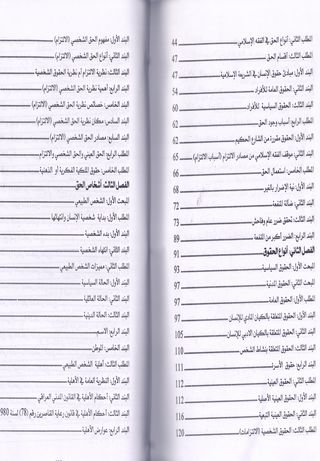 المطلب الثاني: أنواع الحق في الفقه الإسلامي 44
المطلب الثالث: أقسام الحق 47
البند الأول: مبادئ حقوق الإنسان في الشريعة الإسلامية 47
البند الثاني: الحقوق العامة للأفراد 54
البند الثالث: الحقوق السياسية للأفراد 60
المطلب الرابع: أسباب وجود الحق 62
البند الأول: الحقوق مقررة من الشارع الحكيم 62
البند الثاني: موقف الفقه الإسلامي من مصادر الالتزام (أسباب الالتزام) 65
المطلب الخامس: استعمال الحق 66
البند الأول: نية الإضرار بالغير 68
البند الثاني: ضآلة المنفعة 72
البند الثالث: تحقق ضرر عام وفاحش 73
البند الرابع: الضرر أكبر من المنفعة 89
الفصل الثاني: أنواع الحقوق 91
المبحث الأول: الحقوق السياسية 93
المبحث الثاني: الحقوق المدنية 97
المطلب الأول: الحقوق العامة 97
البند الأول: الحقوق المتعلقة بالكيان المادي للإنسان 97
البند الثاني: الحقوق المتعلقة بالكيان الأدبي للإنسان 105
البند الثالث: الحقوق المتعلقة بنشاط الشخص 110
البند الرابع: حقوق الأسرة 111
المطلب الثاني: الحقوق العينية 112
البند الأول: الحقوق العينية الأصلية 112
البند الثاني: الحقوق العينية التبعية 116
المطلب الثالث: الحقوق الشخصية (الالتزامات) 120
البند الأول: مفهوم الحق الشخصي (الالتزام)
البند الثاني: أنواع الحق الشخصي (الالتزام)
البند الثالث: نظرية الالتزام أم نظرية الحقوق الشخصية
البند الرابع: أهمية نظرية الحق الشخصي (الالتزام)
البند الخامس: خصائص نظرية الحق الشخصي (الالتزام)
البند السادس: مكان نظرية الحق الشخصي (الالتزام)
البند السابع: مصادر الحق الشخصي (الالتزام)
المطلب الرابع: الحق العيني والحق الشخصي والالتزام
المطلب الخامس: حقوق الملكية الفكرية أو الذهنية
الفصل الثالث: أشخاص الحق
المبحث الأول: الشخص الطبيعي
المطلب الأول: بداية شخصية الإنسان وانتهائها
البند الأول: بدء الشخصية
البند الثاني: انتهاء الشخصية
المطلب الثاني: مميزات الشخص الطبيعي
البند الأول: الحالة السياسية
البند الثاني: الحالة العائلية
البند الثالث: الحالة الدينية
البند الرابع: الاسم
البند الخامس: الموطن
المطلب الثالث: أهلية الشخص الطبيعي
البند الأول: النظرية العامة في الأهلية
البند الثاني: أحكام الأهلية في القانون المدني العراقي
البند الثالث: أحكام الأهلية في قانون رعاية القاصرين رقم (78) لسنة 980
البند الرابع: عوارض الأهلية